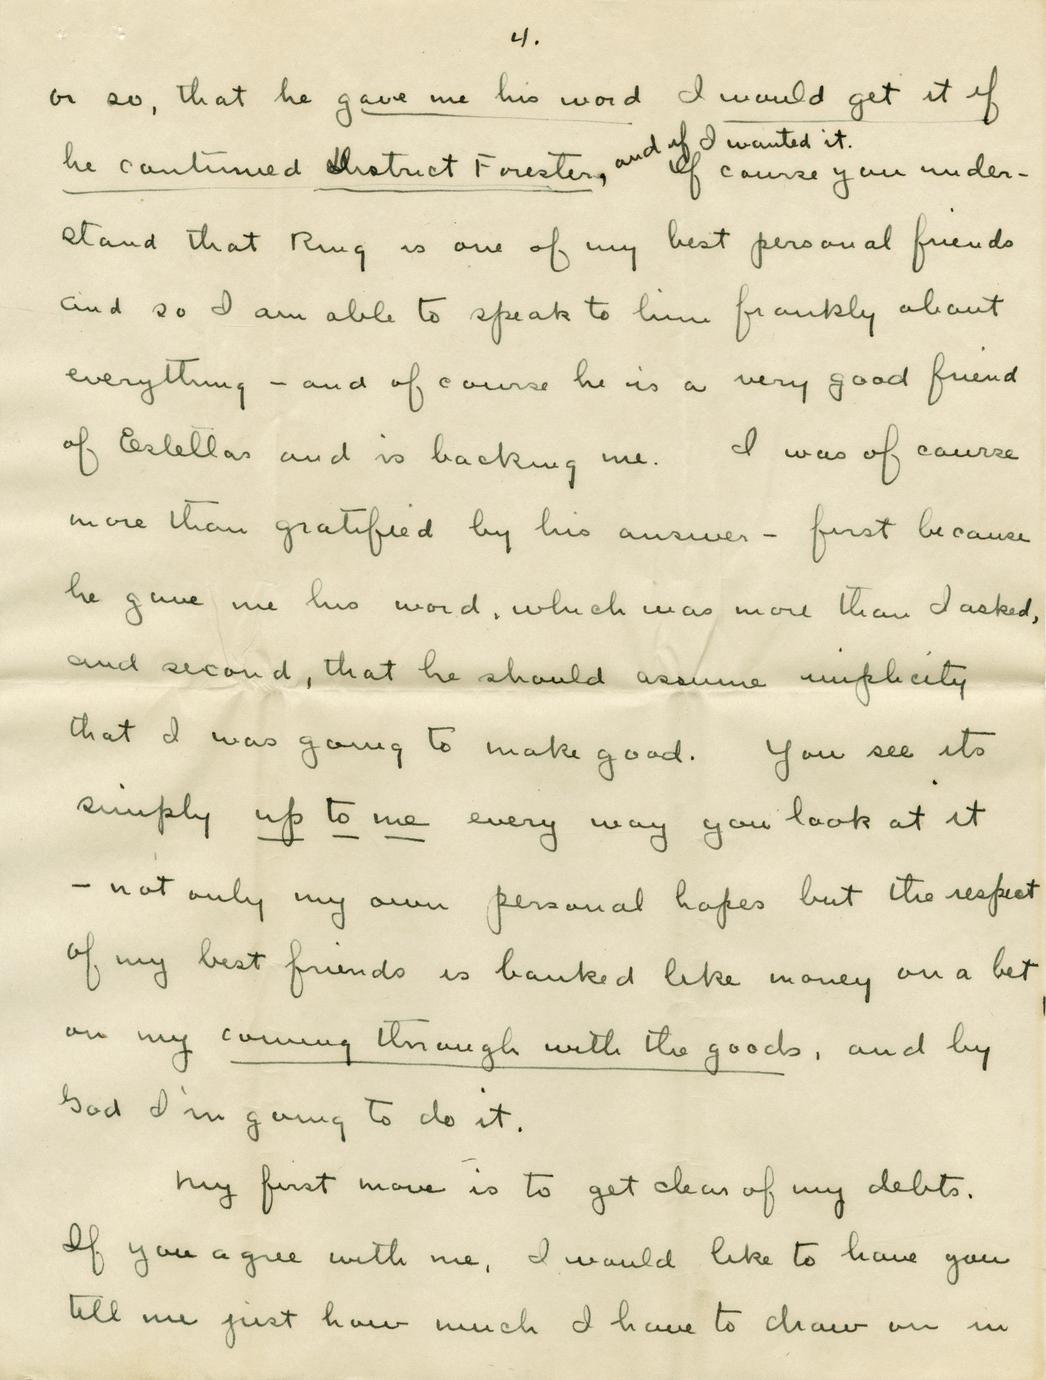 4.
or so, that he gave me his word I would get it if
he continued District Forester, and if I wanted it. Of course you under-
stand that Ring is one of my best personal friends
and so I am able to speak to him frankly about
everything – and of course he is a very good friend
of Estellas and is backing me. I was of course
more than gratified by his answer – first because
he gave me his word, which was more than I asked,
and second, that he should assume implicity
that I was going to make good. You see its
simply up to me every way you look at it
– not only my own personal hopes but the respect
of my best friends is banked like money on a bet
on my coming through with the goods, and by
God I'm going to do it.
My first move is to get clear of my debts.
If you agree with me, I would like to have you
tell me just how much I have to draw on in